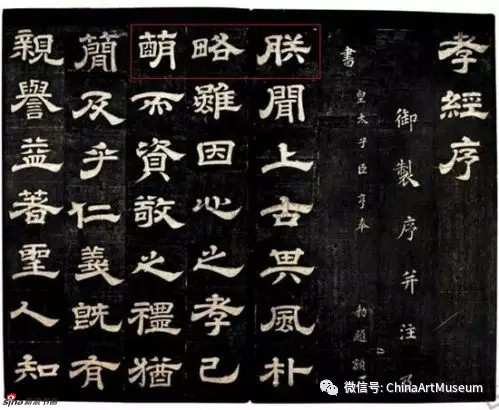 孝經序
御製序并注及
書
皇太子臣亨奉 勅題額
朕聞上古其風朴
略雖因心之孝已
萌而資敬之禮猶
簡及乎仁義既有
親譽益著聖人知
微信号: ChinaArtMuseum
sina